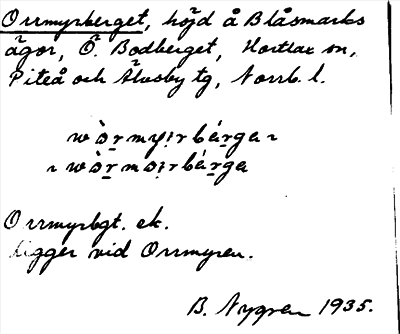 Orrmyrberget, höjd å Blåsmarks
ägor, Ö. Bodberget, Hortlax sn,
Piteå och Älvsby tg, Norrb. l.
Orrmyrbgt. ek.
Ligger vid Orrmyren.
B. Nygren 1935.